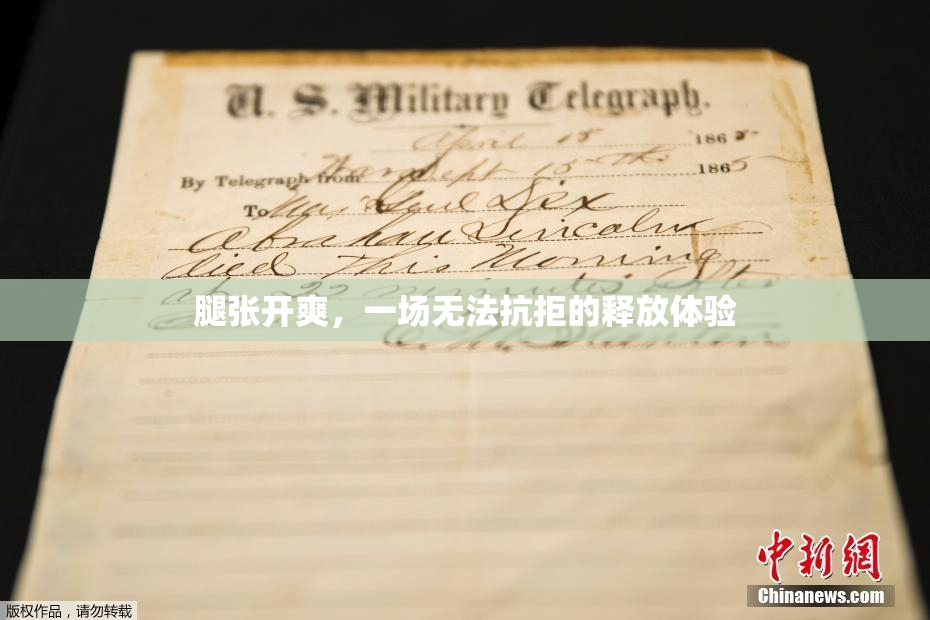 U. S. Military Telegraph.
April 15 1865
By Telegraph from War Dept 15th 1865
To Maj Genl Dix
Abraham Lincoln
died This Morning
at 22 minutes after
腿张开爽，一场无法抗拒的释放体验
E. M. Stanton
中新网
Chinanews.com
版权作品，请勿转载